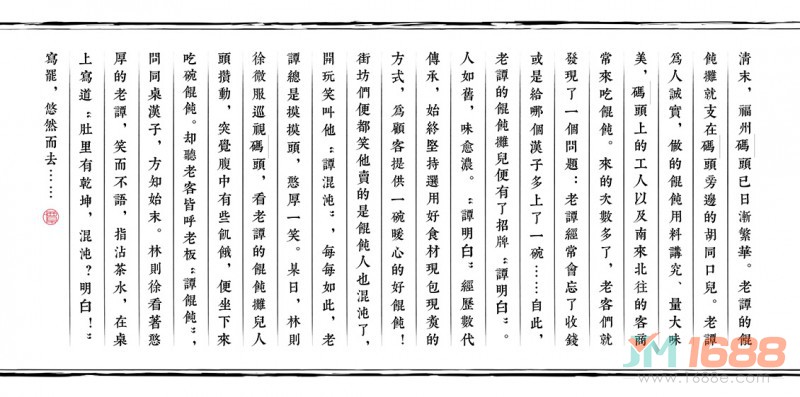 清末，福州碼頭已日漸繁華。老譚的餛
飩攤就支在碼頭旁邊的胡同口兒。老譚
爲人誠實，做的餛飩用料講究、量大味
美，碼頭上的工人以及南來北往的客商
常來吃餛飩。來的次數多了，老客們就
發現了一個問題：老譚經常會忘了收錢
或是給哪個漢子多上了一碗……自此，
老譚的餛飩攤兒便有了招牌“譚明白”。
人如舊，味愈濃。“譚明白”經歷數代
傳承，始終堅持選用好食材現包現煑的
方式，爲顧客提供一碗暖心的好餛飩！
街坊們便都笑他賣的是餛飩人也混沌了，
開玩笑叫他“譚混沌”，每每如此，老
譚總是摸摸頭，憨厚一笑。某日，林則
徐微服巡視碼頭，看老譚的餛飩攤兒人
頭攢動，突覺腹中有些飢餓，便坐下來
吃碗餛飩。却聽老客皆呼老板“譚餛飩”，
問同桌漢子，方知始末。林則徐看著憨
厚的老譚，笑而不語，指沾茶水，在桌
上寫道“肚里有乾坤，混沌？明白！”
寫罷，悠然而去……
JM1688
www.1688e.com